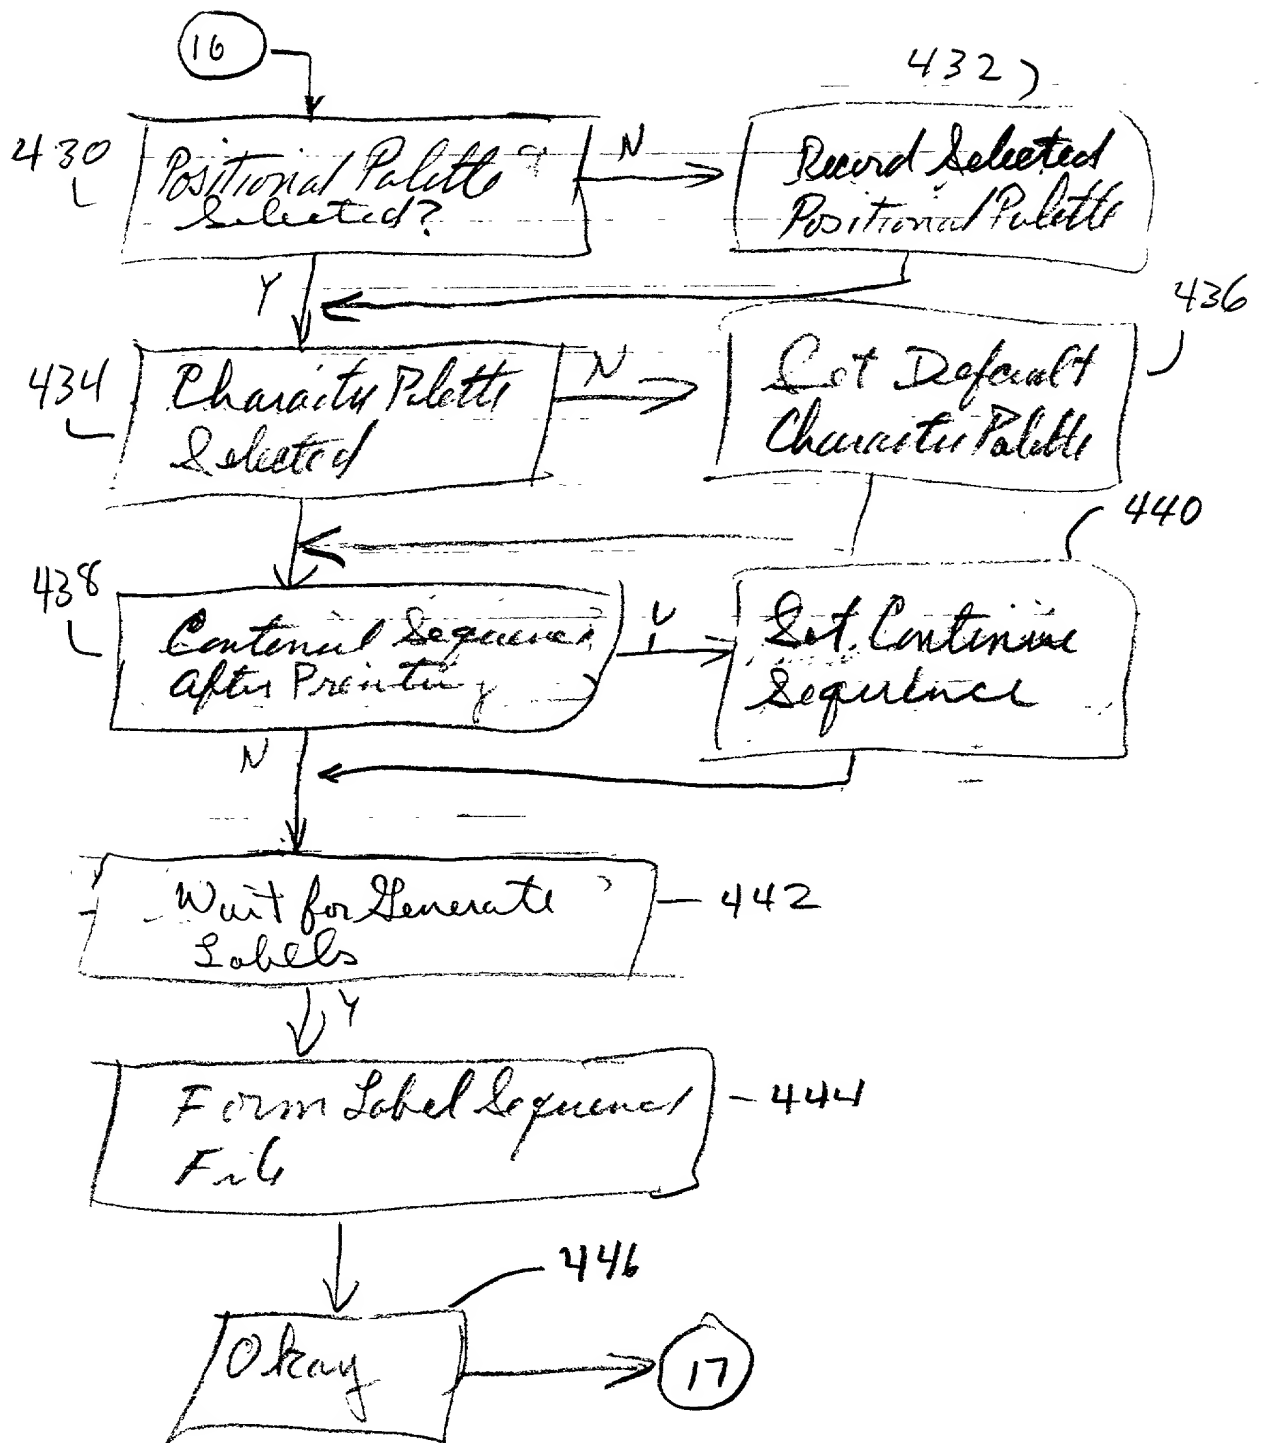 16
432
430
Positional Palette
Selected?
N
Record Selected
Positional Palette
Y
436
434
Character Palette
Selected
N
Set Default
Character Palette
440
438
Continue Sequence
After Printing
Set Continue
Sequence
N
Wait for Generate
Labels
442
Y
Form Label Sequence
File
444
446
Okay
17